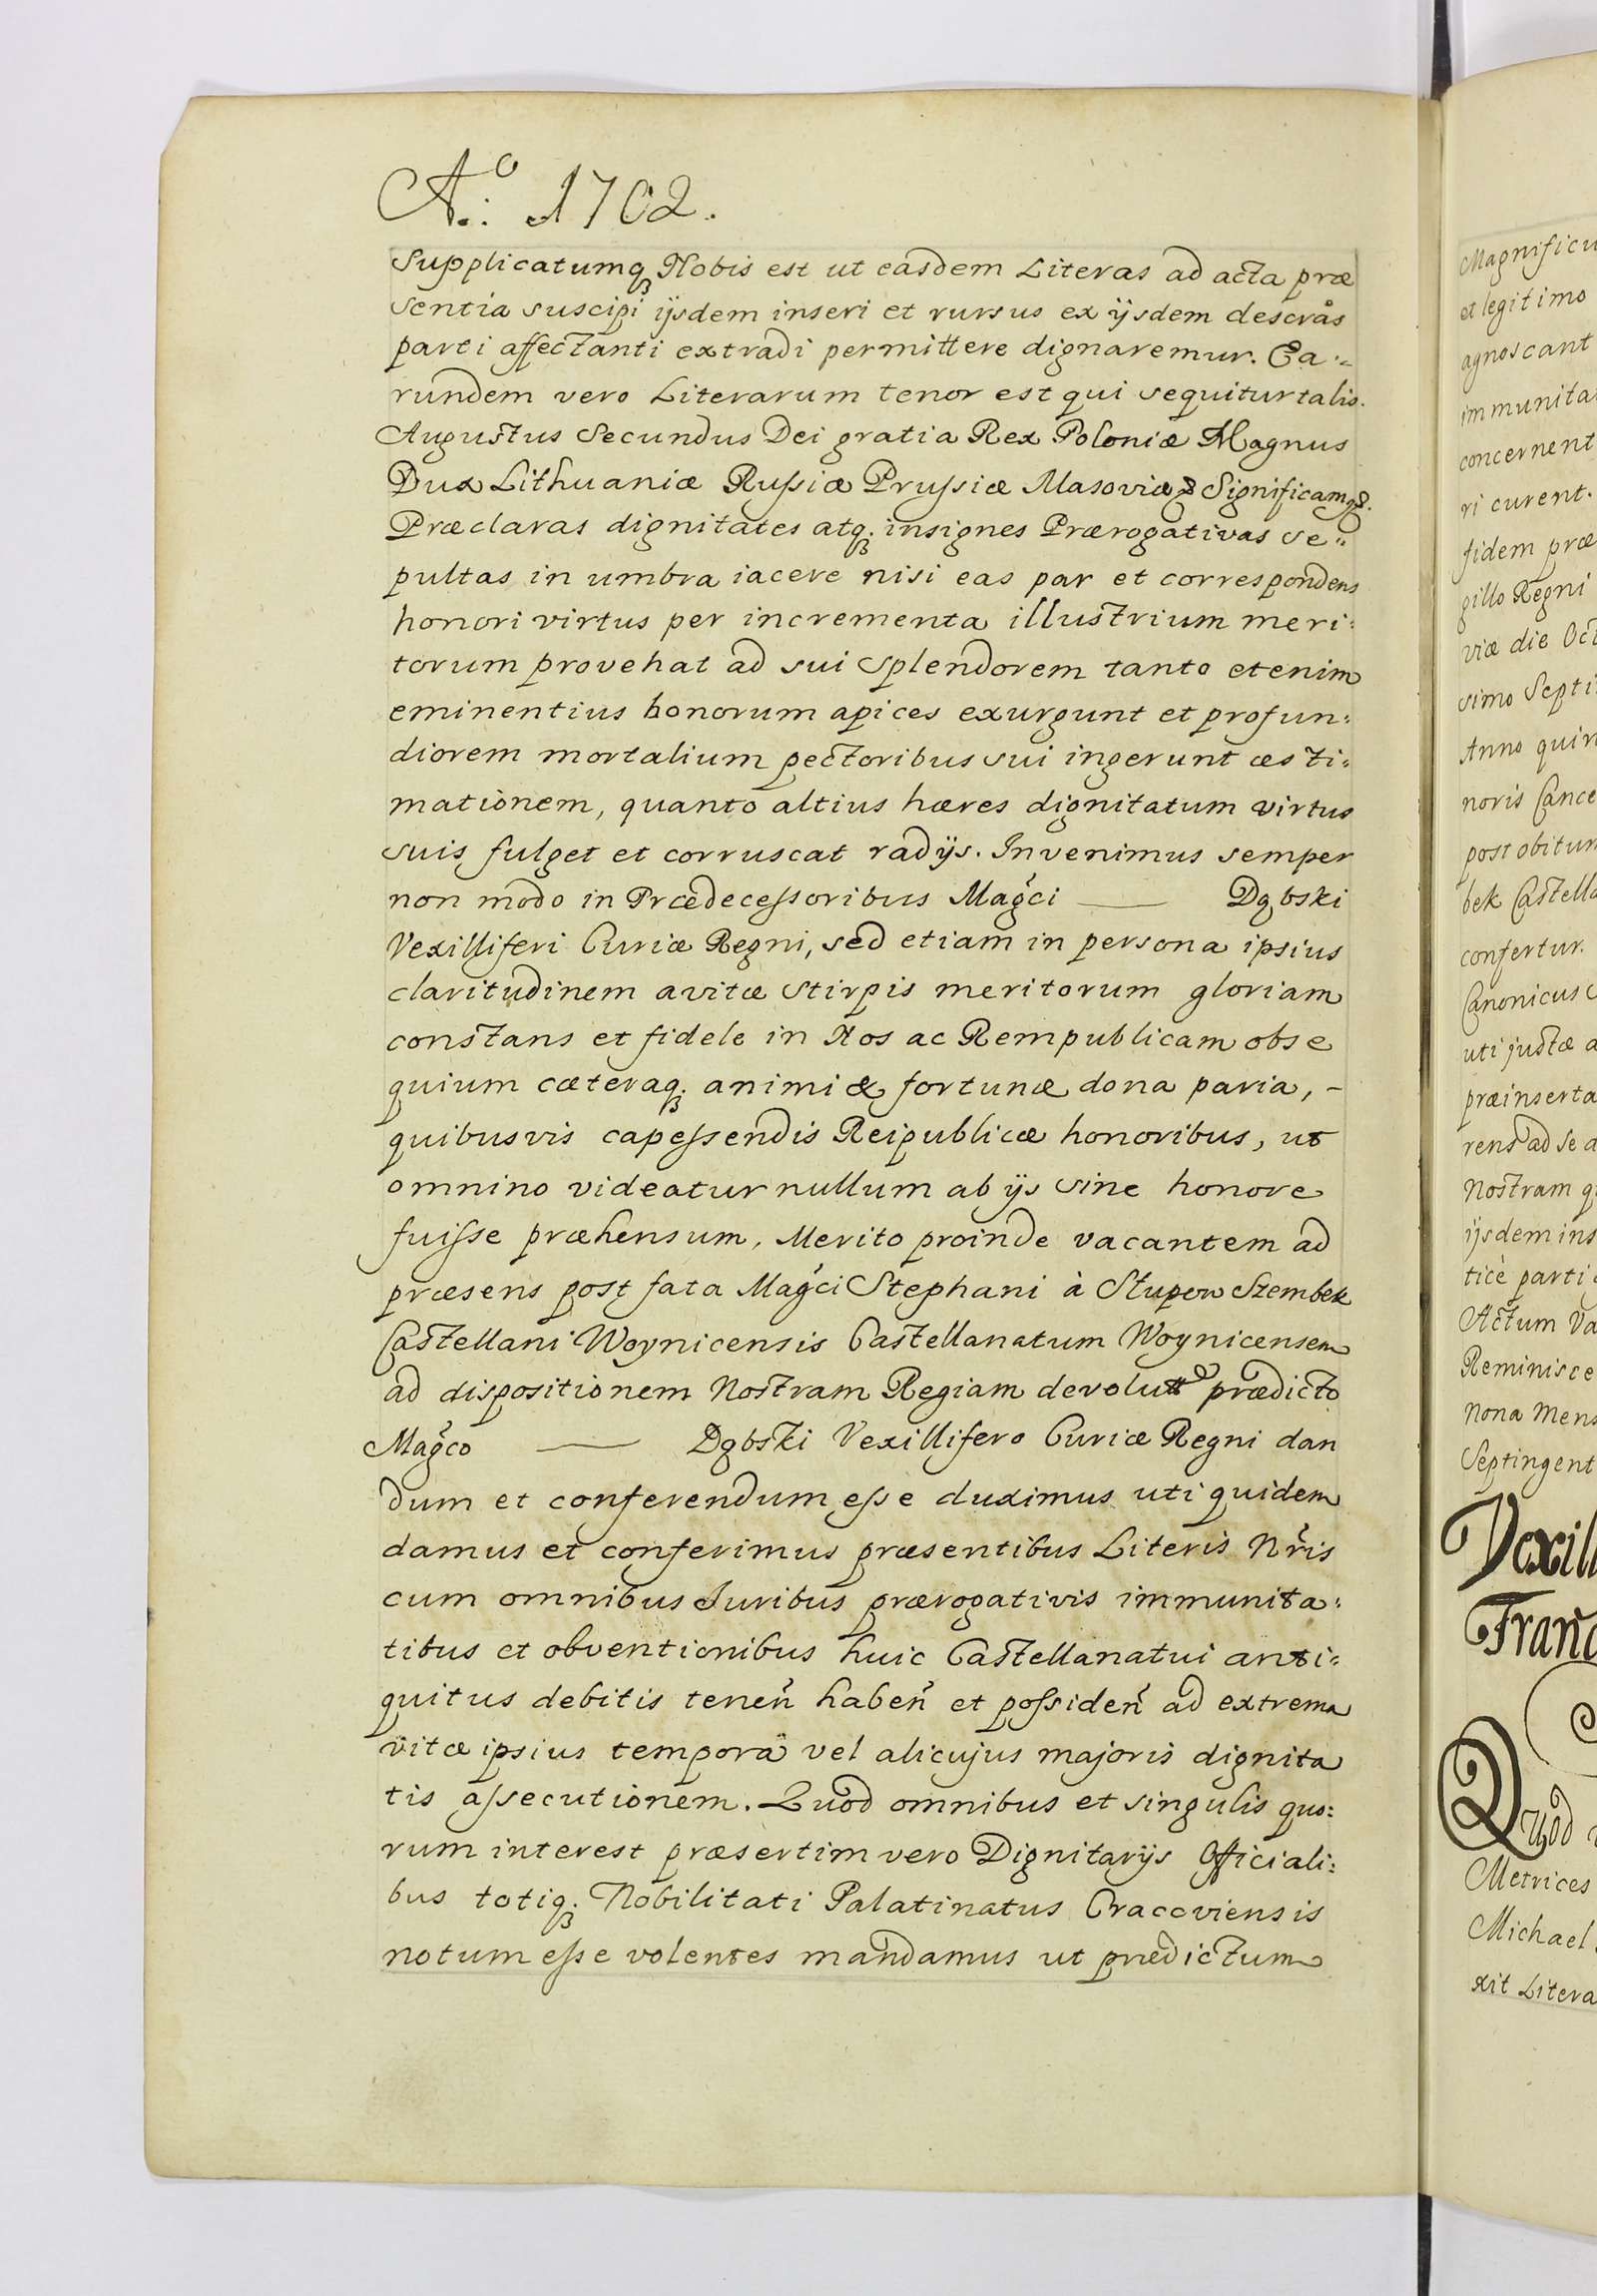 A.º 1702.
Supplicatumqꝫ Nobis est ut easdem Literas ad acta præ
sentia suscipi ijsdem inseri et rursus ex ijsdem descrås
parti affectanti extradi permittere dignaremur. Ea:=
rundem vero Literarum tenor est qui sequitur talis.
Augustus Secundus Dei gratia Rex Poloniæ Magnus
Dux Lithuaniæ Rußiæ Prußiæ Masoviæ &
Præclaras dignitates atqꝫ. insignes Prærogativas se=
pultas in umbra iacere nisi eas par et correspondens
honori virtus per incrementa illustrium meri:
torum provehat ad sui splendorem tanto etenim
eminentius honorum apices exurgunt et profun:
diorem mortalium pectoribus sui ingerunt æsti=
mationem, quanto altius hæres dignitatum virtus
suis fulget et corruscat radijs. Invenimus semper
non modo in Prædeceßoribus Magci —— Dąbski
Vexilliferi Curiæ Regni, sed etiam in persona ipsius
claritudinem avitæ stirpis meritorum gloriam
constans et fidele in Nos ac Rempublicam obse
quium cæteraqꝫ. animi & fortunæ dona paria, -
quibusvis capeßendis Reipublicæ honoribus, ut
omnino videatur nullum ab ijs sine honore
fuiße præhensum. Merito proinde vacantem ad
præsens post fata Magci Stephani à Słupow Szembek
Castellani Woynicensis Castellanatum Woynicensem
ad dispositionem Nostram Regiam prædicto
Magco —— Dąbski Vexillifero Curiæ Regni dan
dum et conferendum eße duximus uti quidem
damus et conferimus præsentibus Literis Nris
cum omnibus Juribus prærogativis immunita:
tibus et obventionibus huic Castellanatui anti=
quitus debitis tenen haben et poßiden ad extrema
vitæ ipsius tempora vel alicujus majoris dignita
tis aßecutionem. Quod omnibus et singulis quo:
rum interest præsertim vero Dignitarijs Officiali:
bus totiqꝫ. Nobilitati Palatinatus Cracoviensis
notum eße volentes mandamus ut prædictum
Magnificu
et legitimo
agnoscant
immunita
concernent
ri curent.
fidem præ
gillo Regni
viæ die Oct
simo Septi
Anno quin
noris Cance
post obitum
bek Castella
confertur.
Canonicus
uti justæ a
præinserta
rens ad se a
Nostram q
ijsdem ins
ticè parti
Actum Va
Reminisce
Nona Mens
Septingent
Vexill
Franc
Quod
Metrices
Michael
xit Litera